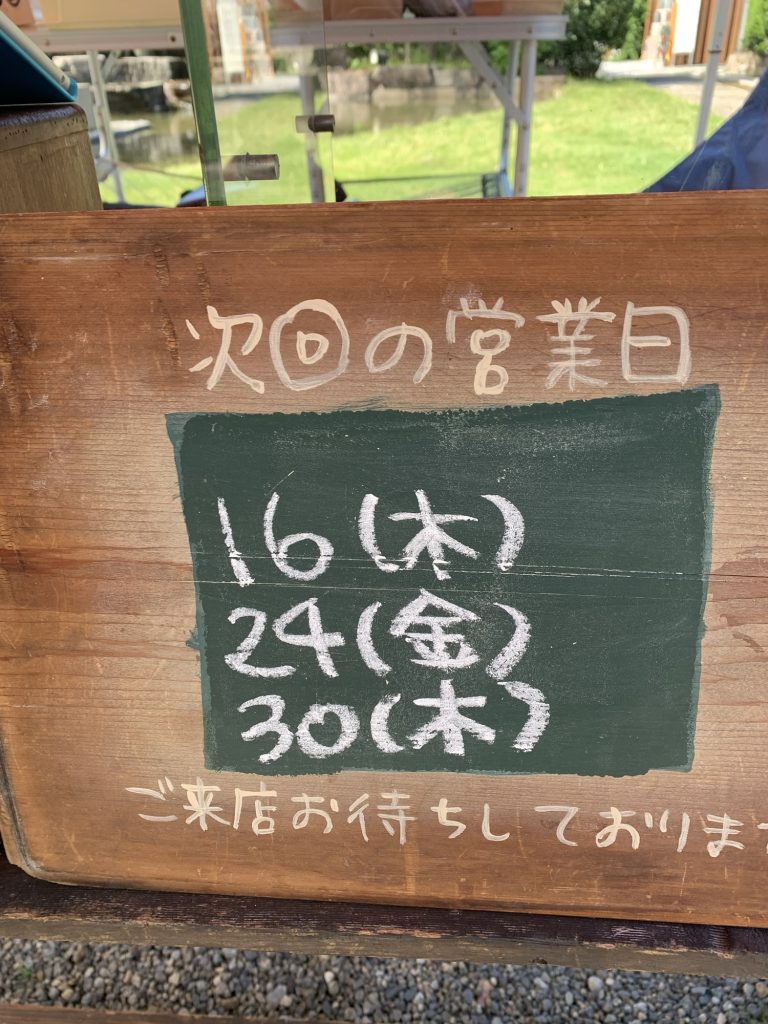 次回の営業日
16(木)
24(金)
30(木)
ご来店お待ちしております